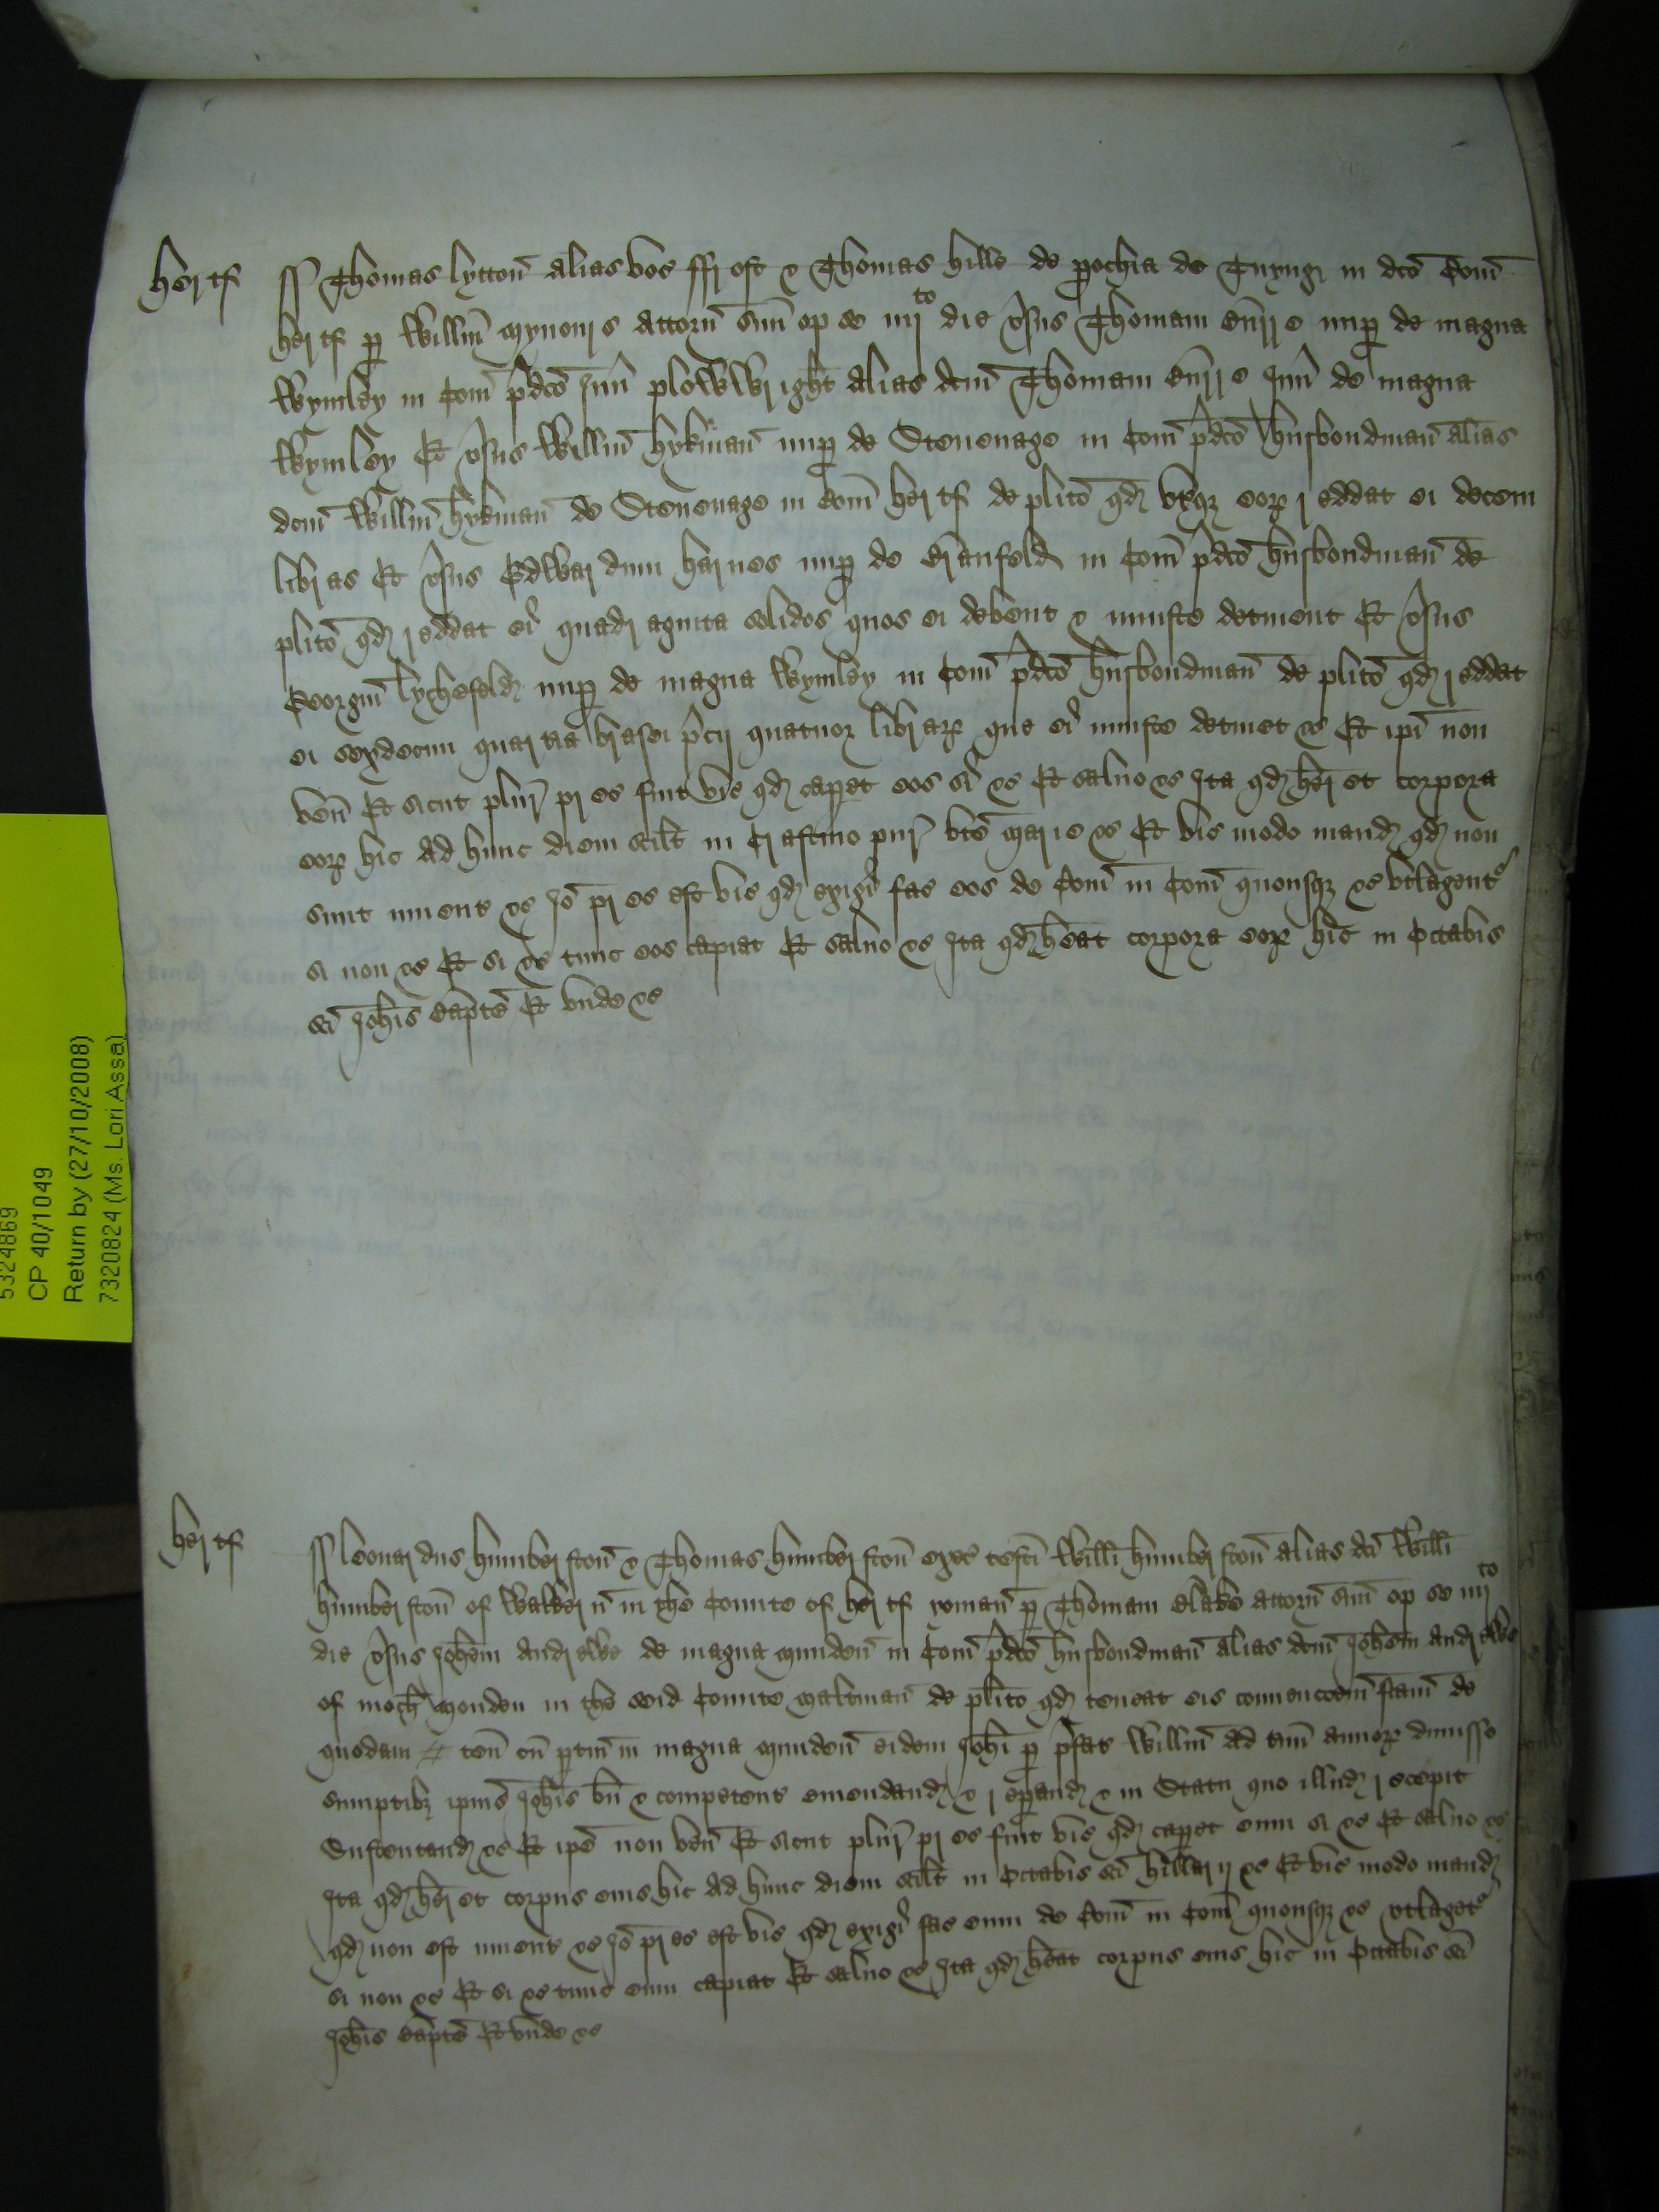 Hertf ss Thomas lytton alias voc ffrost & Thomas hille de pochia de Tryng in dco Com
hertf p Willm mynours attorn suu op se iiij to die vsus Thomam nup de magna
Wymley in Com pdco Junr plowwright alias dcm Thomam Junr de magna
Wymley Et vsus Willm hykman nup de Stevenage in Com pdco husbondman alias
dcm Willm hykman de Stevenage in Com hertf de plito qd utqz eoz reddat ei decem
libras Et vsus Edwardum harnes nup de in Com pdco husbondman de
plito qd reddat ei quadraginta solidos quos ei debent & iniuste detinent Et vsus
Georgiu lychefeld nup de magna Wymley in Com pdco husbondman de plito qd reddat
ei sexdecim quartia brasei pcij quatuor libraz que ei iniuste detinet &c Et ipi non
ven Et sicut plur pres fuit vic qd capet eos si &c Et saluo &c Ita qd heret corpora
eoz hic ad hunc diem scilt in Crastino pur bte marie &c Et vic modo mand qd non
sunt inuent &c Jo pres est vic qd exigi fac eos de Com in Com quousqz &c utlagent
si non &c Et si &c tunc eos capiat Et saluo &c Ita qd heat corpora eoz hic in Octabis
sci Johis Bapte Et unde &c
Hertf ss leonardus humberston & Thomas humberston exec testi Willi humberston alias dci Willi
humberston of Walkern in the Counte of hertf yoman p Thomam Blake attorn suu op se iiij to
die vsus Johem Andrewe de magna munden in Com pdco husbondman alias dcm Johem Andrewe
of moch monden in the seid Counte maltman de plito qd teneat eis convencoem fcam de
quodam ten cu ptin in magna munden eidem Johi p pfat Willm ad tmu annoz dimisso
sumptibz ipius Johis bn & competent emendand & repand & in Statu quo illud recepit
Sustentand &c Et ipe non ven Et sicut plur pres fuit vic qd capet eum si &c Et saluo &c
Ita qd heret corpus eius hic ad hunc diem scilt in Octabis sci hillarij &c Et vic modo mand
qd non est inuent &c Jo pres est vic qd exigi fac eum de Com in Com quousqz &c utlaget
si non &c Et si &c tunc eum capiat Et saluo &c Ita qd heat corpus eius hic in Octabis sci
Johis Bapte Et unde &c
5324869
CP 40/1049
Return by (27/10/2008)
7320824 (Ms. Lori Assa)